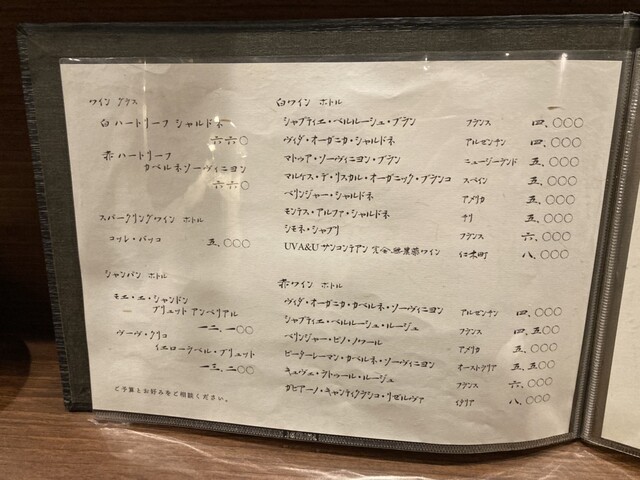 ワイン グラス
白 ハートリーフ シャルドネ
六六〇
赤 ハートリーフ
カベルネソーヴィニヨン
六六〇
スパークリングワイン ボトル
コッレ・バッコ 五、〇〇〇
シャンパン ボトル
モエ・エ・シャンドン
ブリュット アンペリアル
一二、一〇〇
ヴーヴ・クリコ
イエローラベル・ブリュット
一三、二〇〇
ご予算とお好みをご相談ください。
白ワイン ボトル
シャプティエ・ベルルーシュ・ブラン フランス 四、〇〇〇
ヴィダ・オーガニカ・シャルドネ アルゼンチン 四、〇〇〇
マトゥア・ソーヴィニヨン・ブラン ニュージーランド 五、〇〇〇
マルケス・デ・リスカル・オーガニック・ブランコ スペイン 五、〇〇〇
ベリンジャー・シャルドネ アメリカ 五、〇〇〇
モンテス・アルファ・シャルドネ チリ 五、〇〇〇
シモネ・シャブリ フランス 六、〇〇〇
UVA&U サンコンテアン 完全無農薬ワイン 仁木町 八、〇〇〇
赤ワイン ボトル
ヴィダ・オーガニカ・カベルネ・ソーヴィニヨン アルゼンチン 四、〇〇〇
シャプティエ・ベルルーシュ・ルージュ フランス 四、五〇〇
ベリンジャー・ピノ・ノワール アメリカ 五、〇〇〇
ピーターレーマン・カベルネ・ソーヴィニヨン オーストラリア 五、五〇〇
キュヴェ・ラトゥール・ルージュ フランス 六、〇〇〇
ガビアーノ・キャンティクラシコ・リゼルヴァ イタリア 八、〇〇〇